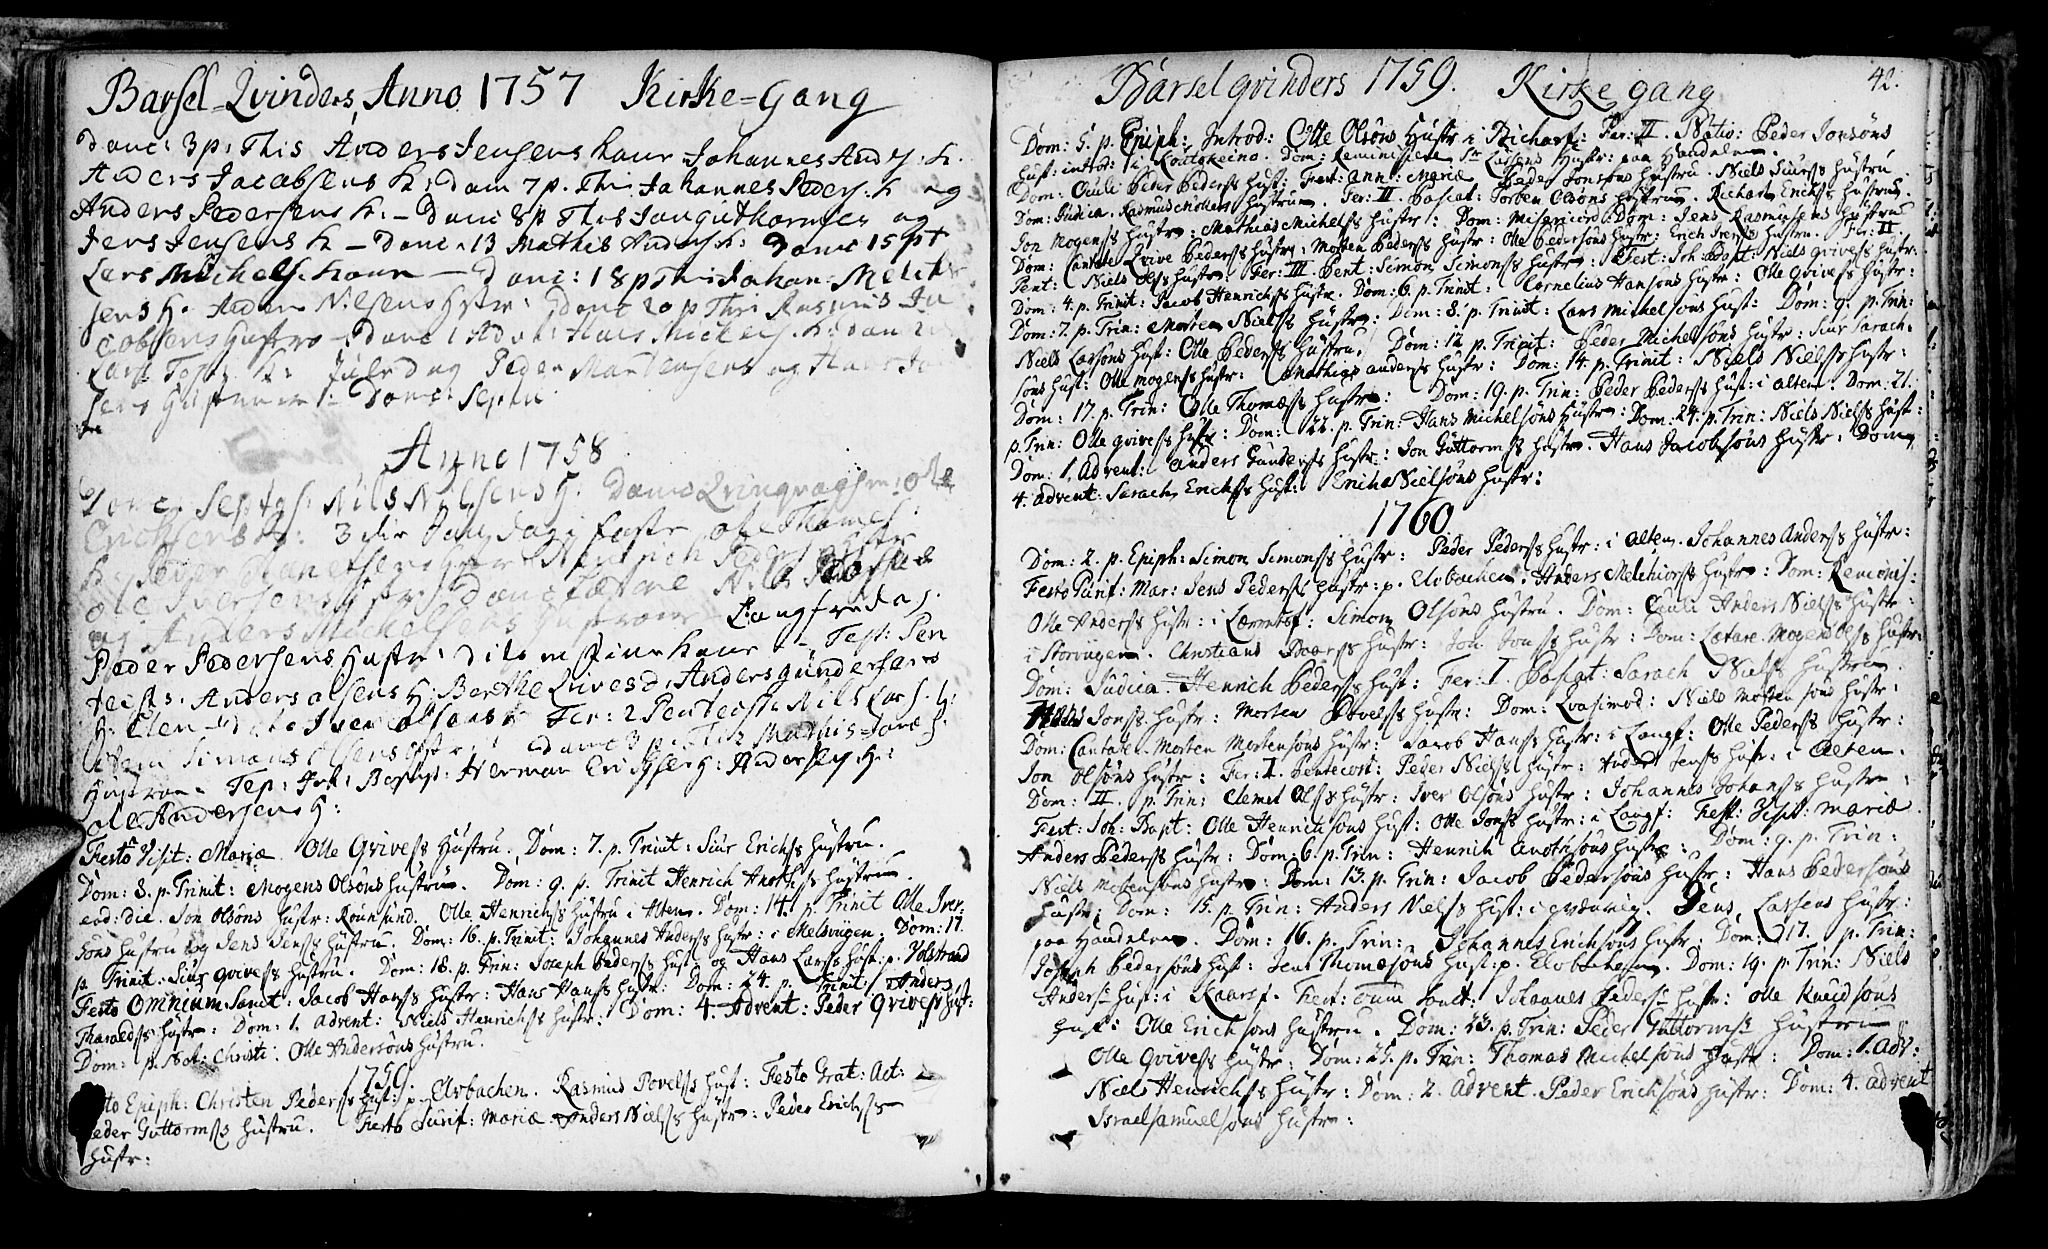 Barsel-Qvinders Anno 1757 Kirke-Gang
Dom: 3 p: This Anders Jensens kone Johannes Anders: K.
Anders Jacobsens K: Dom 7 p. Thr: Johannes Peders: K og
Anders Pedersens K: - Dom: 8 p This Jon guthormsen og
Jens Jensens K - Dom: 13 Mathis Anders K: Dom: 15 pt
Lars Michels: Kone - Dom: 18 p Thr: Johan: Melck
sens H. Peder Nilsens Hstr: Dom: 20 p Thr: Rasmus Ja
cobsens Hustro - Dom: 1 Adv: Hans Mickels: K: Dom 2
Lars K: Juledag Peder Mortensens og Hans
sens Hustruer Dom:
Anno 1758
Dom: Septgs: Nils Nilsens H. Dom: Qvinqvagesim: Ole
Ericksens H: 3die Søndag i faste Ole Thomes:
H: Peder Hstr Henrich Peders Hstr
Ole Iversens Hstr: Dom: Lætare Nils
og Anders Mickelsens Hustroer Langfredag
Peder Pedersens Hustr: Fest: Pen
tecst: Anders Olsens H: Berthe Qvives d: Anders gundersens
H: Elen Iver Olsens Fer: 2 Pentecost: Nils Lars: H:
item Simons Olsens Hstr: Dom: 3 p: This Mathis
Hustroe Fest: Joh: Baptist: Herman Erichsens H: Anders H:
Ole Andersens H:
Festo Visit: Mariæ. Olle Qvivess Hustru. Dom: 7. p. Trinit: Siur Erichss hustru.
Dom: 8. p. Trinit: Mogens Olsöns hustrue. Dom: 9. p. Trinit Henrich hustrue.
eod: die. Jon Olsöns hustr: Rounsund. Olle Henrichss hustru i Alten. Dom: 14. p. Trinit Olle Iver:
sons hustru og Jens Jenss hustru. Dom: 16. p. Trinit: Johannes Anderss hustr: i Melsvigen. Dom: 17.
p. Trinit: Siur Qvivess hustru. Dom: 18. p. Trin: Joseph Pederss hust: og Hans Larss hust: p. Volstrand
Festo Omnium Sanct: Jacob Hanss hustr: Hans Hanss hustr: Dom: 24. p. Trinit: Anders
Tharaldss hustr: Dom: 1. Advent: Niels Henrichss hustr: Dom: 4. Advent: Peder Qvivess hust:
Dom: p. Nat: Christi: Olle Andersöns hustru.
1759.
Festo Epiph: Christen Pederss hust: p. Elvbachen. Rasmus Povelss hust: Festo Grat: Act:
Peder Guttormss hustru. Festo Purif: Mariæ Anders Nielss hustr: Peder Erichss
hustr:
Barselqvinders 1759. Kirkegang
42.
Dom: 5. p. Epiph: Introd: Olle Olsöns Hustr: i Fer: II. Natio: Peder Jonsöns
hust: introd: i Koutokeino. Dom: Reminiscere Larsens hustr: paa Handelen.
Dom: Oculi Peder Pederss hust: Fest: Ann: Mariæ Peder Jonsöns hustru. Niels Siurss hustru.
Dom: Judica. Rasmus hustrue. Fer: II Pascat: Torben Olsöns hustrue. Richart Erichss hustrue.
Jon Mogenss hustr: Mathias Michelss hustr: Dom: Misericord: Dom: Jens Rasmusens hustru
Dom: Cantate Qvive Pederss hustr: Morten Pederss hustr: Olle Pedersöns hustr: Erich Iverss hustru. Fer: II.
Pent: Niels Olss hustr: Fer: III. Pent: Simon Simonss hustr: Fest: Joh. Bapt: Niels Qvivess hustr:
Dom: 4. p. Trinit: Jacob Henrichss hustr. Dom: 6. p. Trinit: Cornelius Hansöns hustr: Olle Qvivess hustr:
Dom: 7. p. Trin: Morten Nielss hustr: Dom: 8. p. Trinit: Lars Michelsöns hust: Dom: 9. p. Trin:
Niels Larsöns hust: Olle Pederss hustru. Dom: 12. p. Trinit: Peder Michelsöns hustr: Siur Sarach:
söns hust: Olle Mogenss hustr: Mathias Anderss hustr: Dom: 14. p. Trinit: Niels Nielss hustr:
Dom: 17. p. Trin: Olle Thomæss hustr: Dom: 19. p. Trin: Peder Pederss hust: i Alten. Dom: 21.
p. Trin: Olle Qvivess hustr: Dom: 22. p. Trin: Hans Michelsöns hustr: Dom: 24. p. Trin: Niels Nielss hust:
Dom: 1. Advent: Anders Gunderss hustr: Jon Guttormss hustr. Hans Jacobsöns hustr: Dom:
4. Advent: Sarach Erichss hust: Erich Nielsöns hustr:
1760
Dom: 2. p. Epiph: Simon Simonss hustr: Peder Pederss hustr: i Alten. Johannes Anderss hustr:
Festo Purif: Mar: Jens Pederss hustr: p. Elvbachen. Anders Melchiorss hustr: Dom: Reminis:
Olle Anderss hustr: i Simon Olsöns hustru. Dom: Oculi Anders Nielss hustr:
i Storvigen. Christians hustr: Jon Jonss hustr: Dom: Lætare. Mogens Olss hustr:
Dom: Judica. Henrich Pederss hust: Fer: I. Pascat: Sarach Nielss hustrue.
Jonss hustr: Morten Povelss hustr: Dom: Qvasimod: Niels Mortensöns hustr:
Dom: Cantate. Morten Mortensöns hustr: Jacob Hanss hustr: i Langf: Olle Pederss hustr:
Jon Olsöns hustr: Fer: I. Pentecost: Peder Nielss hustr: Anders Jenss hustr: i Alten.
Dom: II. p. Trin: Clemet Olss hustr: Iver Olsöns hustr: Johannes Johanss hustr:
Fest: Joh: Bapt: Olle Henrichsöns hust: Olle Jonss hustr: i Langf: Fest: Visit: Mariæ
Anders Pederss hustr: Dom: 6. p. Trin: Henrich hustr: Dom: 9. p. Trin:
Niels Mortensöns hustr: Dom: 13. p. Trin: Jacob Pedersöns hustr: Hans Pedersöns
hustr: Dom: 15. p. Trin: Anders Nielss hust: i Jens Larsens hustr:
paa Handelen. Dom: 16. p. Trin: Johannes Erichsöns hustr: Dom: 17. p. Trin:
Joseph Pedersöns hust: Jens Thomæsöns hust: p. Elvbachen. Dom: 19. p. Trin: Niels
Anders: hust: i Kaarsf. Fest: omn: sanct: Johannes Peders: hustr: Olle Knudsöns
hust: Olle Erichsöns hustru. Dom: 23. p. Trin: Peder Guttormss hustrue
Olle Qvivess hustr: Dom: 25. p. Trin: Thomas Michelsöns hustr: Dom: 1. Adv:
Niels Henrichss hustr: Dom: 2. Advent. Peder Erichsöns hustr: Dom: 4. Advent
Israel Samuelsöns hustr: